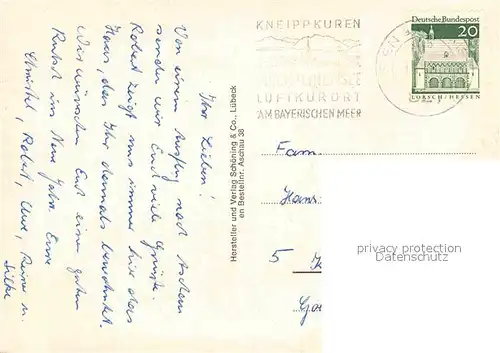 KNEIPPKUREN
LUFTKURORT
AM BAYERISCHEN MEER
Deutsche Bundespost
20
LORSCH/HESSEN
Ihr Lieben!
Von einem Ausflug nach Aschau
senden wir Euch viele Grüsse.
Robert zeigt uns immer hier das
Haus, das Ihr damals bewohntet.
Wir wünschen Euch einen guten
Rutsch ins Neue Jahr. Eure
Christel, Robert, Uwe, Reiner u.
Hersteller und Verlag Schöning & Co., Lübeck
en Bestellnr. Aschau 38
Fam.
Hans
5
privacy protection
VEROSTA